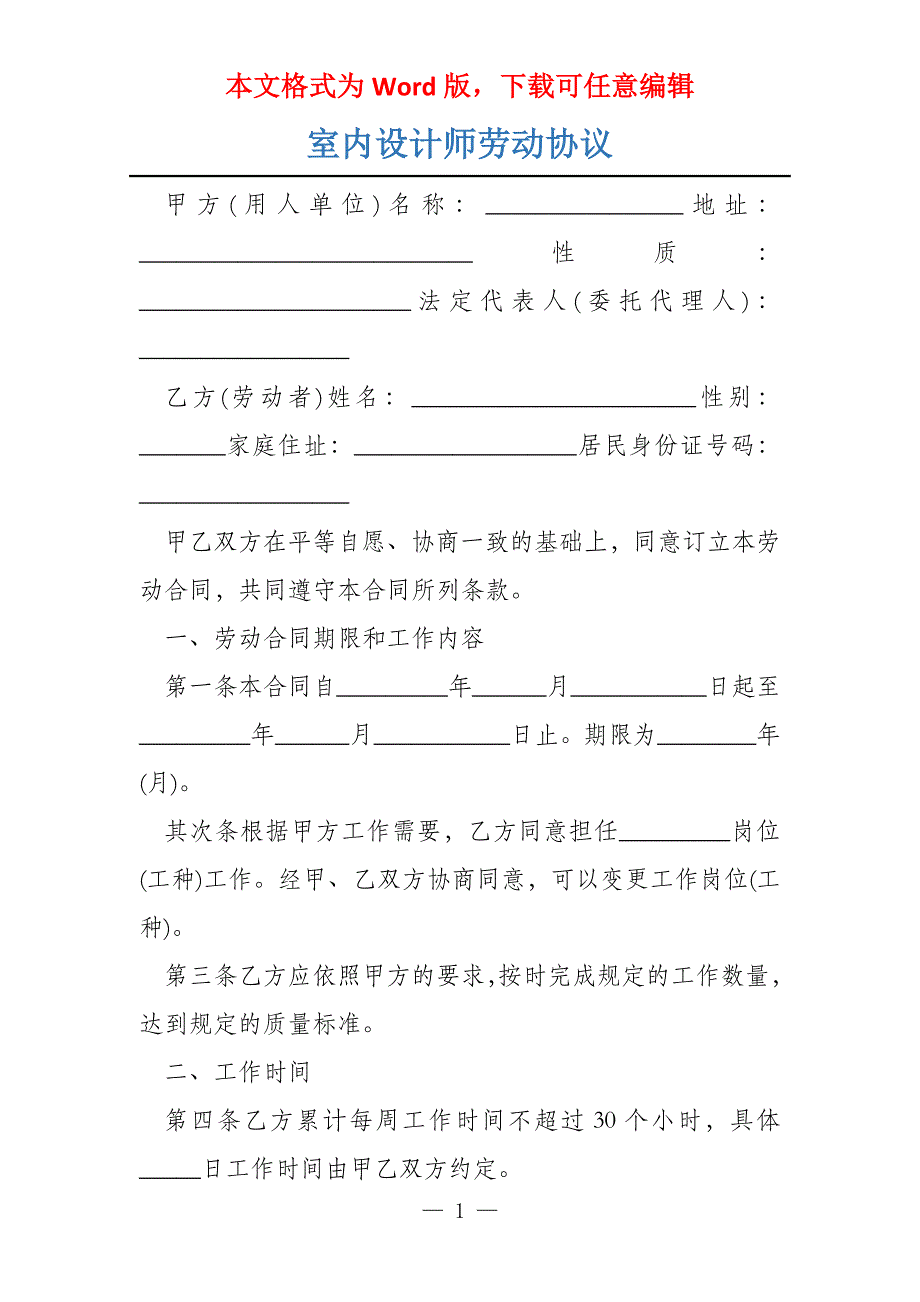 本文格式为 Word 版，下载可任意编辑
室内设计师劳动协议
甲方(用人单位)名称：________________地址：
___________________________ 性质：
______________________法定代表人(委托代理人)：
_________________
乙方(劳动者)姓名：_______________________性别：
_______家庭住址：__________________居民身份证号码：
_________________
甲乙双方在平等自愿、协商一致的基础上，同意订立本劳
动合同，共同遵守本合同所列条款。
一、劳动合同期限和工作内容
第一条本合同自_________年______月___________日起至
_________年______月___________日止。期限为________年
(月)。
其次条根据甲方工作需要，乙方同意担任_________岗位
(工种)工作。经甲、乙双方协商同意，可以变更工作岗位(工
种)。
第三条乙方应依照甲方的要求,按时完成规定的工作数量，
达到规定的质量标准。
二、工作时间
第四条乙方累计每周工作时间不超过 30 个小时，具体
_____日工作时间由甲乙双方约定。
— 1 —